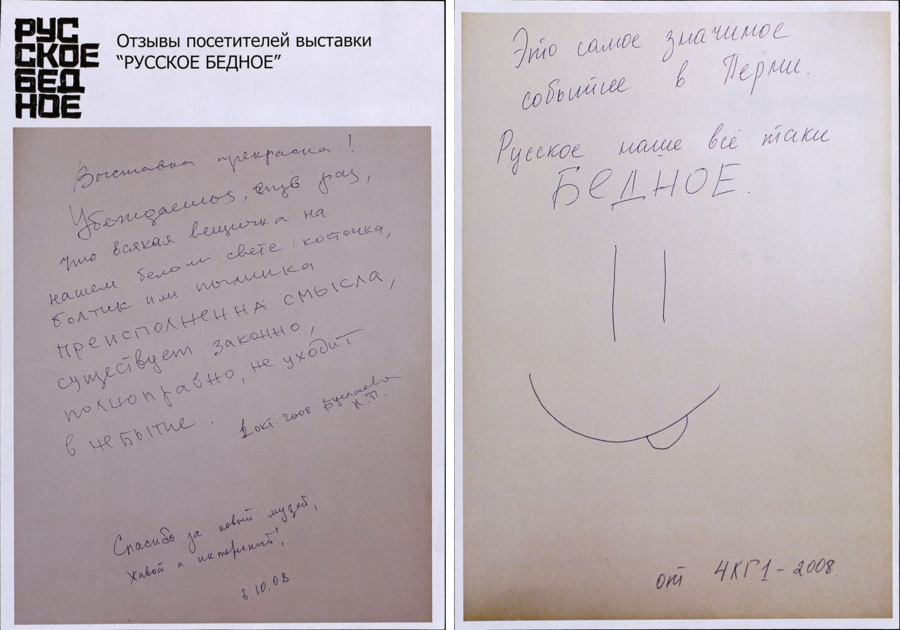 РУС
СКОЕ
БЕД
НОЕ
Отзывы посетителей выставки
“РУССКОЕ БЕДНОЕ”
Выставка прекрасна !
Убеждаешься, ещё раз,
что всякая вещичка на
нашем белом свете: косточка,
болтик или пылинка
преисполненна смысла,
существует законно,
полноправно, не уходит
в небытие.
2 окт. 2008
Спасибо за новый музей,
Живой и интересный!
3.10.08
Это самое значимое
событие в Перми.
Русское наше всё таки
БЕДНОЕ.
от ЧКГ1-2008